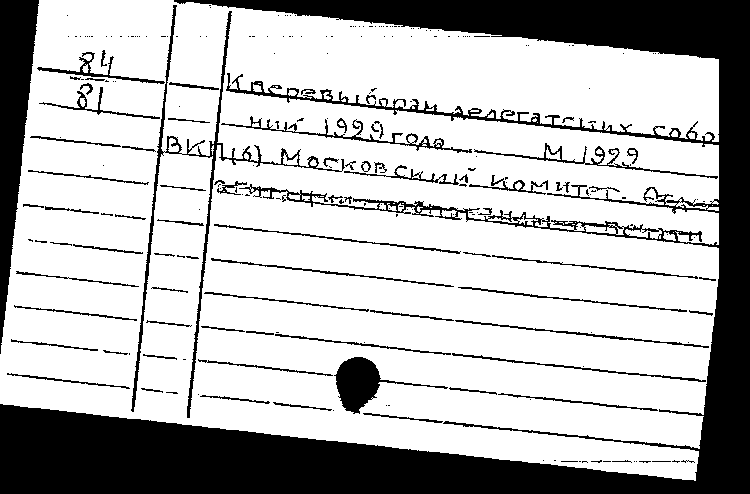 84
81
К перевыборам делегатских собр
ний 1929 года М. 1929
ВКП(б) Московский комитет. Отдел
агитации пропаганды и печати.